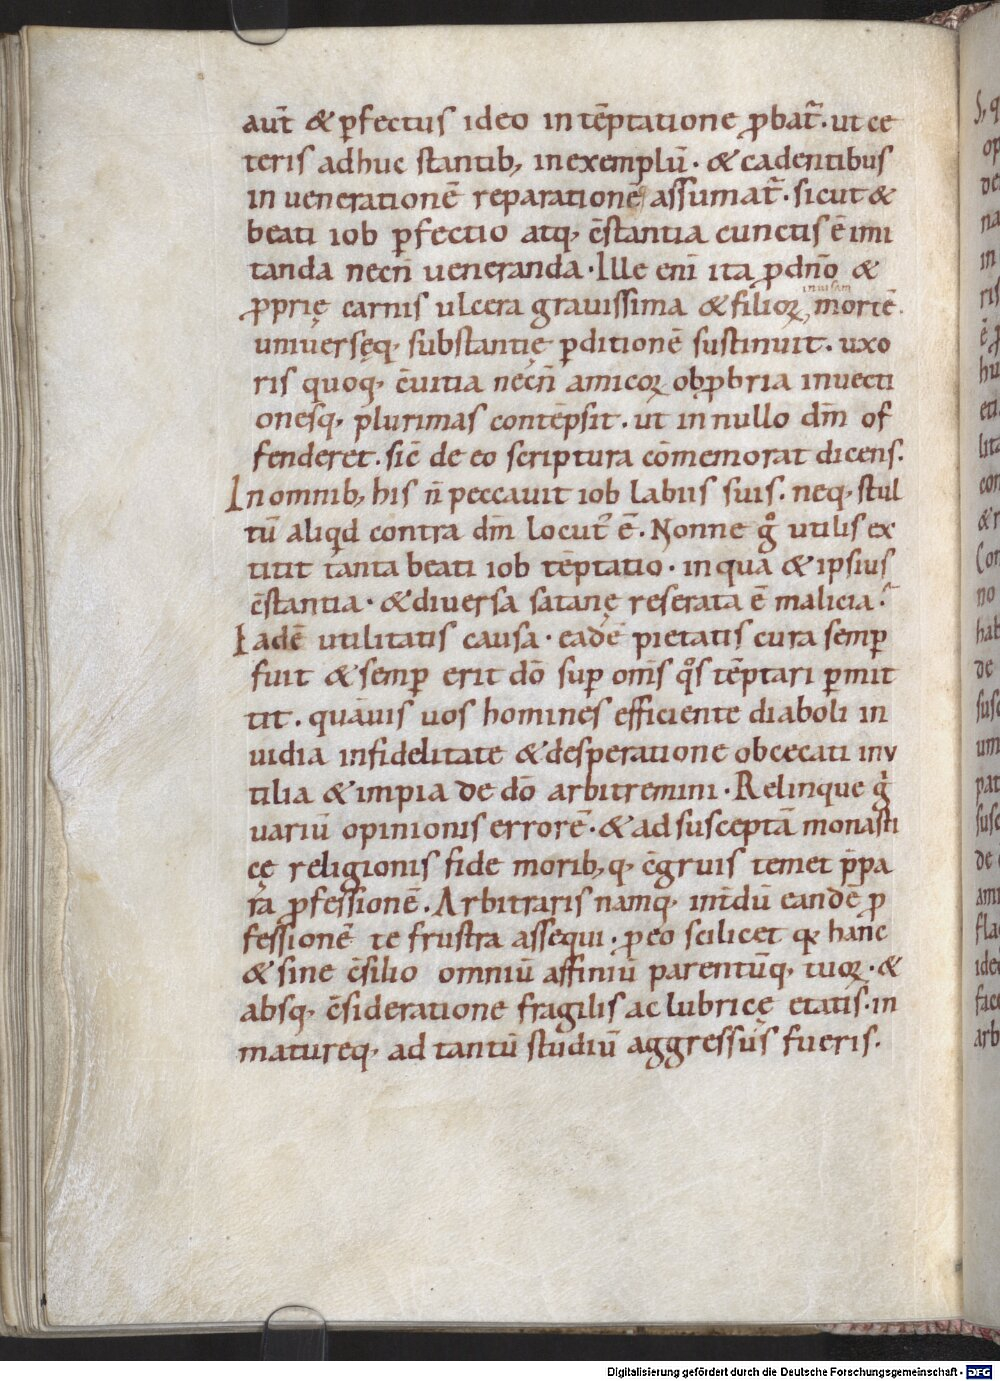 aut̄ & ꝑfectus ideo in tēptatione ꝓbat᷑. ut ce
teris adhuc stantib; in exemplū. & cadentibus
in uenerationē reparationē assumat᷑. sicut &
beati iob ꝑfectio atq; c̄stantia cunctis ē imi
tanda necn̄ ueneranda. Ille eni̅ ita ꝓ dn̄o &
inuisam
ꝓprię carnis ulcera grauissima & filioꝝ, mortē.
uniuersęq; substantię ꝑditionē sustinuit. uxo
ris quoq; c̄uitia necn̄ amicoꝝ obꝓbria inuecti
onesq; plurimas contēpsit. ut in nullo dm̄ of
fenderet. sic̄ de eo scriptura cōmemorat dicens.
In omnib; his n̄ peccauit iob labiis suis. neq; stul
tū aliqd contra dm̄ locut᷒ ē. Nonne gͦ utilis ex
titit tanta beati iob tēptatio. in qua & ipsius
c̄stantia. & diuersa satanę reserata ē malicia.
Eadē utilitatis causa. eadē pietatis cura semꝑ
fuit & semꝑ erit dō suꝑ om̄s qͦs tēptari ꝑmit
tit. quāuis uos homines efficiente diaboli in
uidia infidelitate & desperatione obcecati inu
tilia & impia de dō arbitremini. Relinque gͦ
uariū opinionis errorē. & ad susceptā monasti
cę religionis fide morib; q; c̄gruis temet p̄pa
ra ꝓfessionē. Arbitraris namq; int̄dū eandē ꝓ
fessionē te frustra assequi. ꝓ eo scilicet qꝛ hanc
& sine c̄silio omniū affiniū parentūq; tuoꝝ. &
absq; c̄sideratione fragilis ac lubricę etatis. in
matureq; ad tantū studiū aggressus fueris.
Digitalisierung gefördert durch die Deutsche Forschungsgemeinschaft - DFG